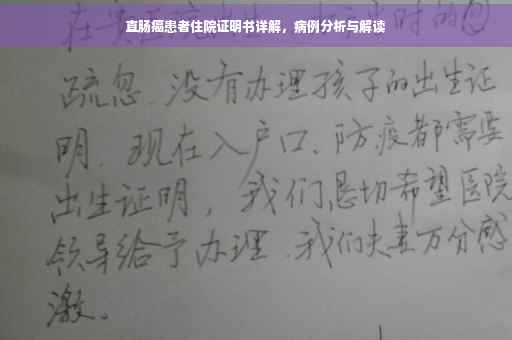 直肠癌患者住院证明书详解，病例分析与解读
在贵 时的
疏忽、没有办理孩子的出生证
明、现在入户口、防疫都需要
出生证明，我们恳切希望医院
领导给予办理、我们夫妻万分感
激。